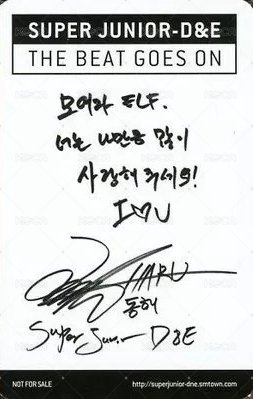 SUPER JUNIOR-D&E
THE BEAT GOES ON
모여라 ELF.
너는 나만큼 많이
사랑해 주세요!
I♡U
HARU
동해
Super Junior D&E
NOT FOR SALE
http://superjunior-dne.smtown.com